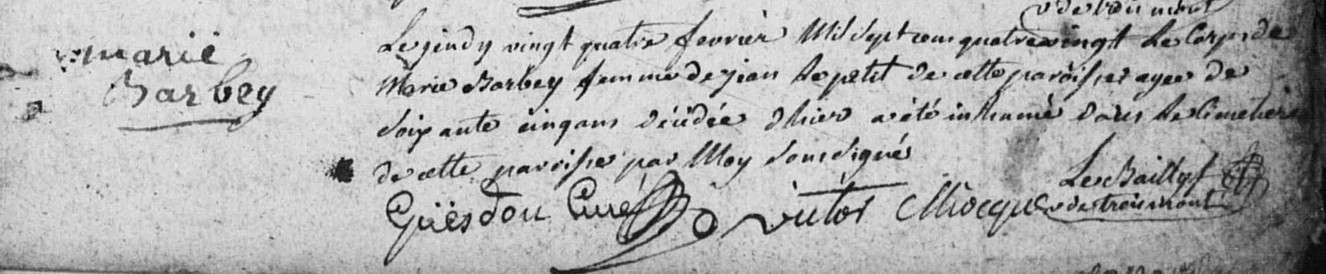 v de troismont
marie
Barbey
Le jeudy vingt quatre fevrier Mil Sept cent quatrevingt Le Corps de
Marie Barbey femme de jean Le petit de cette paroisse agee de
Soixante cinq ans décédée d'hier a été inhumé dans Le Cimetiere
de cette paroisse par Moy Soussigné
Guesdon Curé victor Le Bailly f
v de troismont